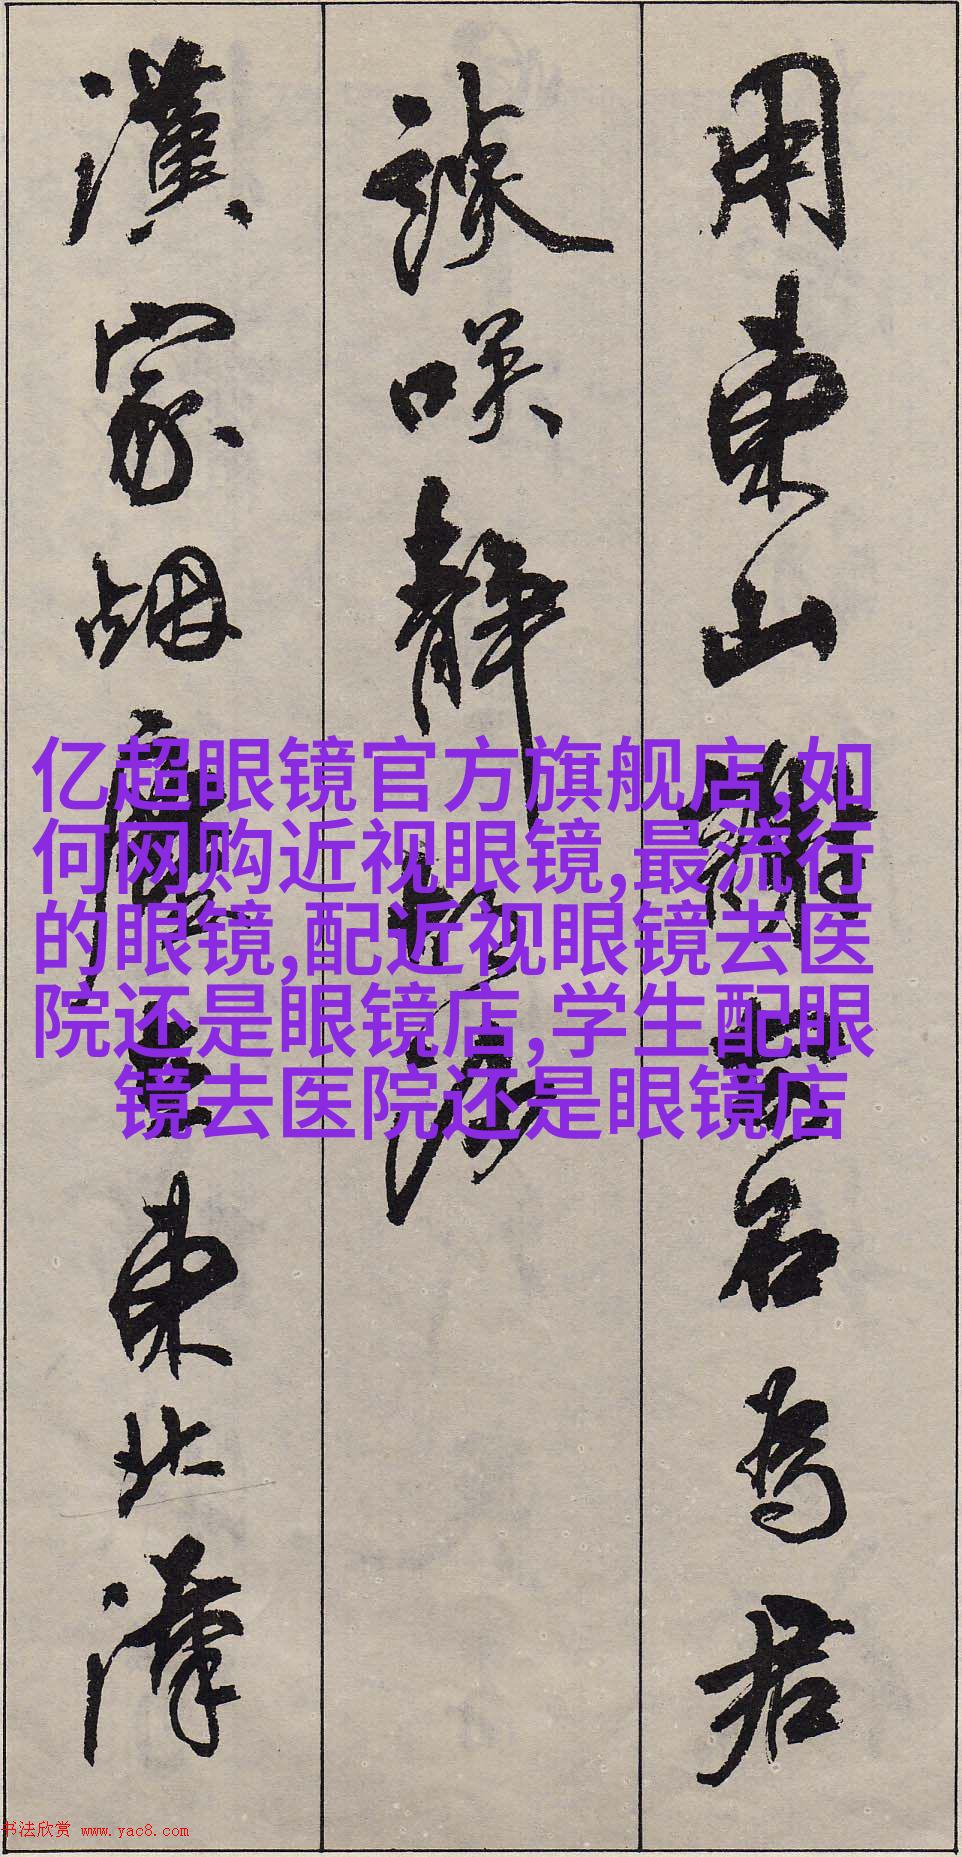 用東山謝安石為君
談咲静胡沙
漢家烟塵在東北漢
亿超眼镜官方旗舰店,如
何网购近视眼镜,最流行
的眼镜,配近视眼镜去医
院还是眼镜店,学生配眼
镜去医院还是眼镜店
书法欣赏 www.yac8.com